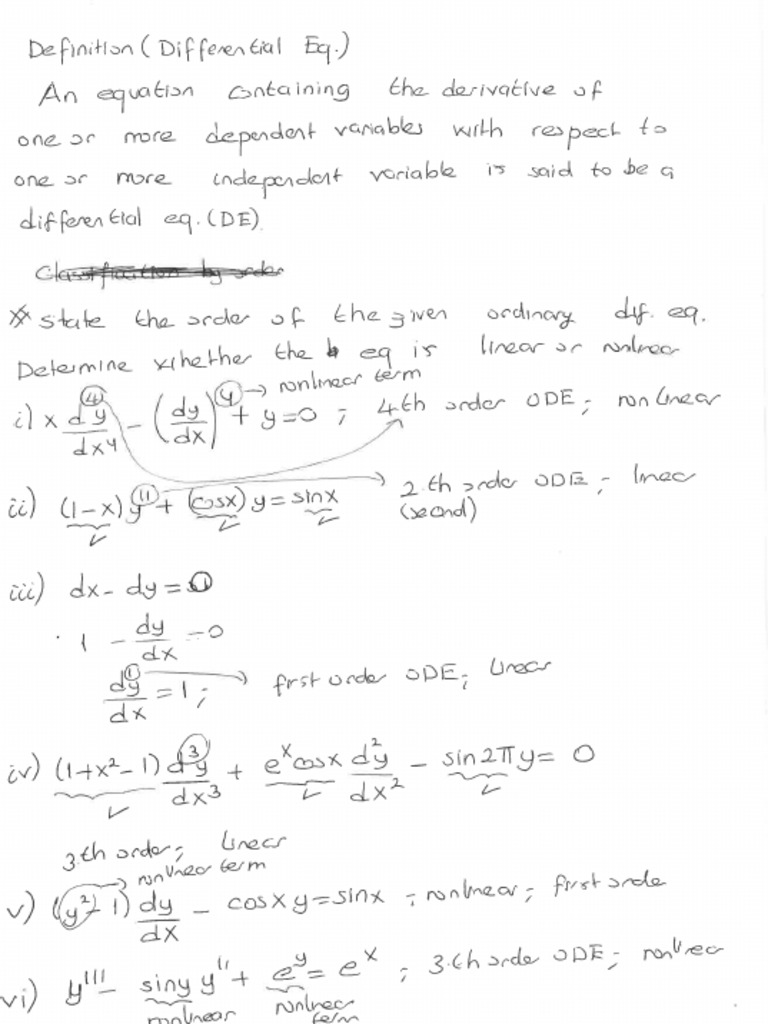 Definition (Differential Eq.)
An equation containing the derivative of
one or more dependent variables with respect to
one or more independent variable is said to be a
differential eq. (DE).
Classification by order
* state the order of the given ordinary dif. eq.
Determine whether the eq is linear or nonlinear
→ nonlinear term
i) x d⁴y/dx⁴ - (dy/dx)⁴ + y = 0 ; 4th order ODE; nonlinear
ii) (1-x) y'' + (cosx) y = sinx → 2.th order ODE; linear
(second)
iii) dx - dy = 0
1 - dy/dx = 0
dy/dx = 1 ; first order ODE; linear
iv) (1+x²-1) d³y/dx³ + eˣcosx d²y/dx² - sin2πy = 0
3.th order; linear
→ nonlinear term
v) (y²-1) dy/dx - cosxy = sinx ; nonlinear; first orde
vi) y''' - siny y'' + eʸ = eˣ ; 3.th order ODE; nonlinear
nonlinear nonlinear
term